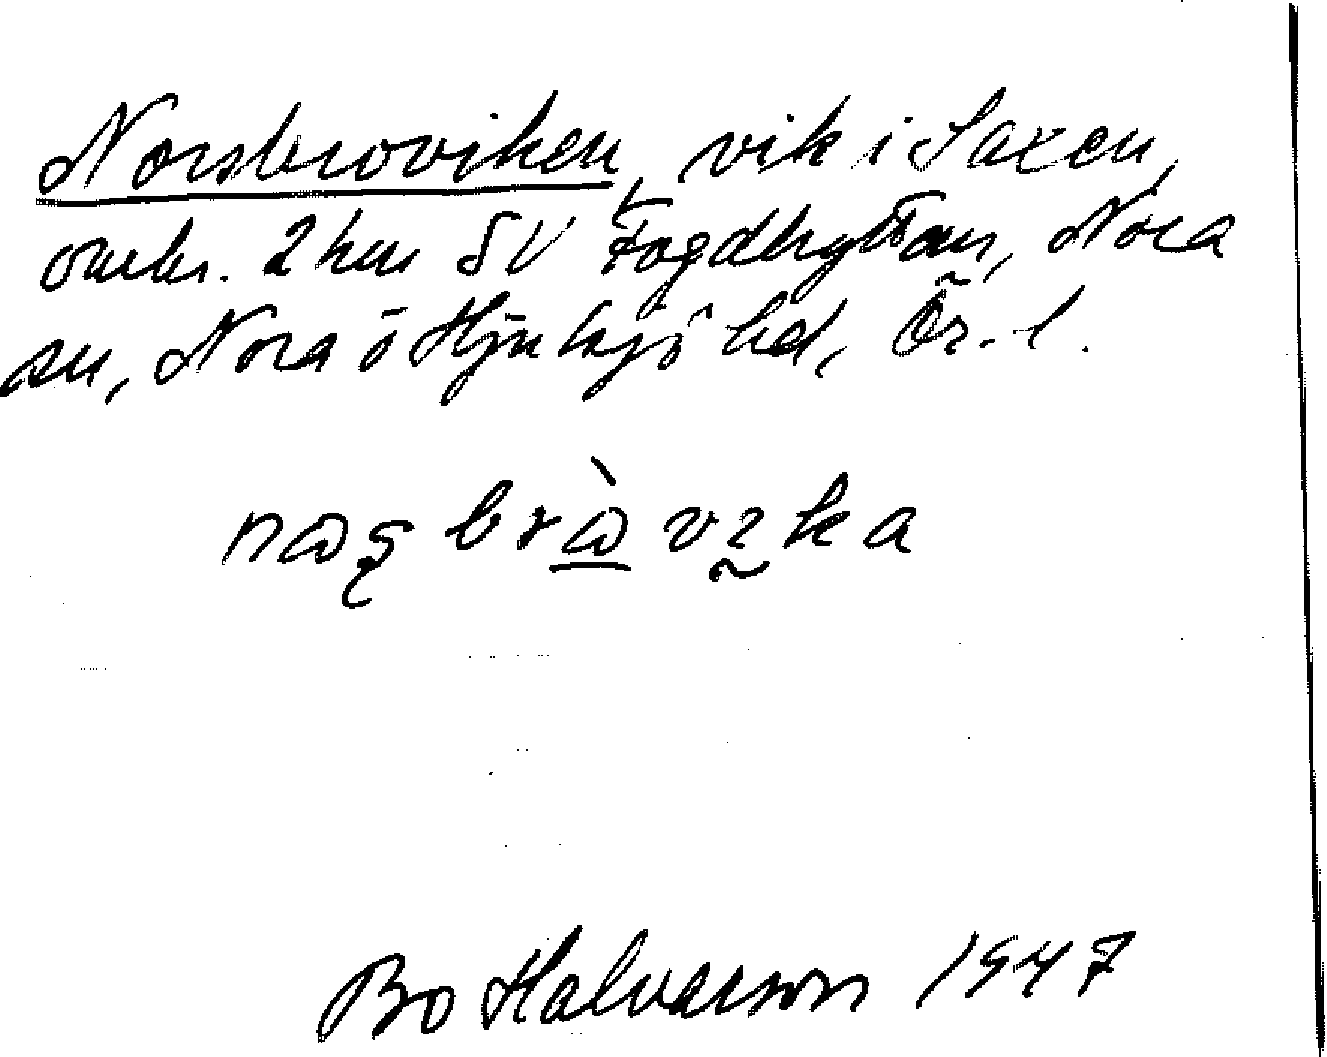 Norsbroviken, vik i Saxen,
omkr. 2 km SV Fogdhyttan, Nora
sn, Nora o Hjulsjö bd, Ör. l.
Bo Halvarson 1947